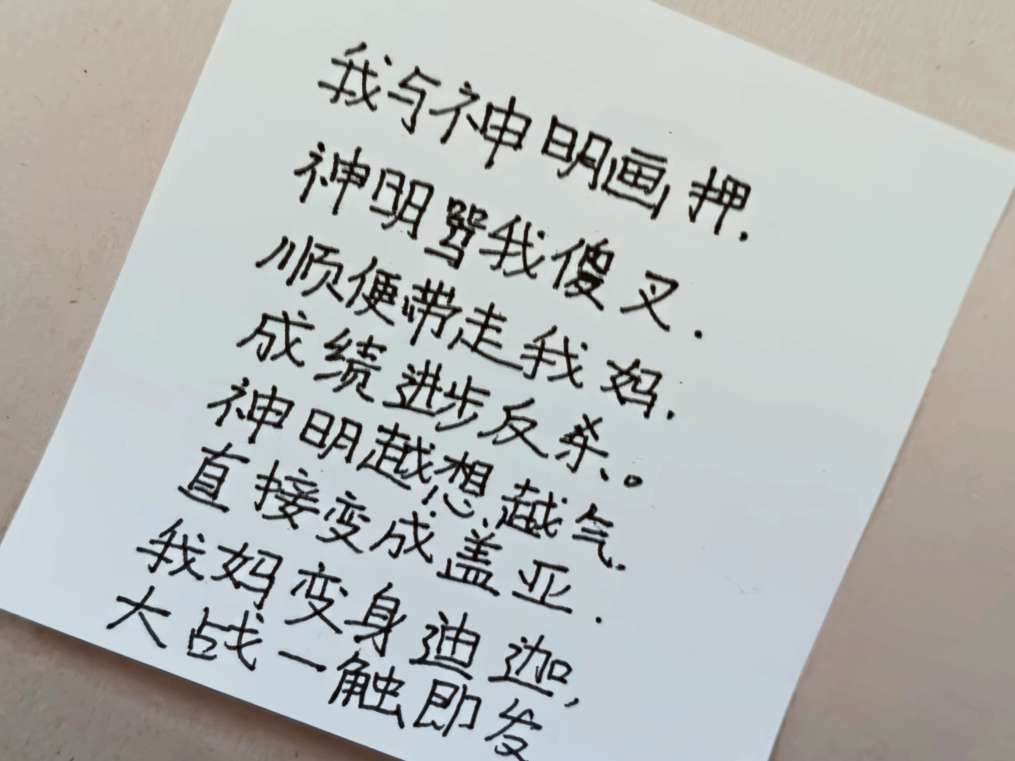 我与神明画押.
神明骂我傻叉.
顺便带走我妈.
成绩进步反杀。
神明越想越气.
直接变成盖亚.
我妈变身迪迦,
大战一触即发